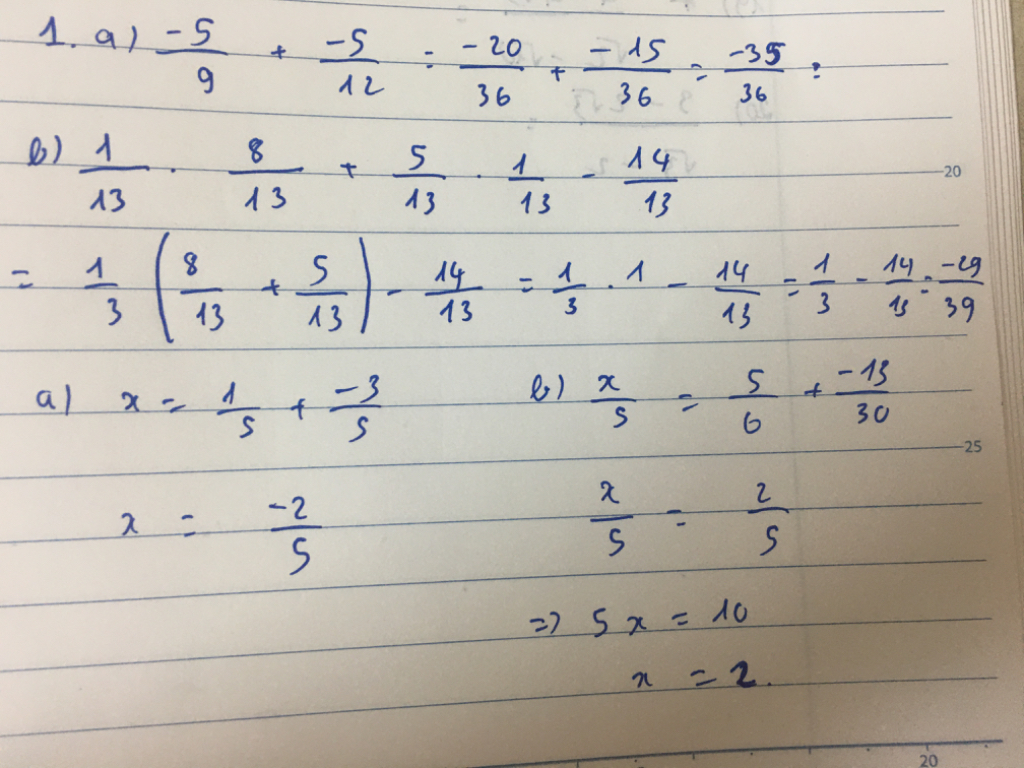 1. a) -5/9 + -5/12 = -20/36 + -15/36 = -35/36 :
b) 1/13 . 8/13 + 5/13 . 1/13 - 14/13
= 1/3 (8/13 + 5/13) - 14/13 = 1/3 . 1 - 14/13 = 1/3 - 14/13 = -29/39
a) x = 1/5 + -3/5 b) x/5 = 5/6 + -13/30
x = -2/5 x/5 = 2/5
=> 5x = 10
x = 2.
20
25
20